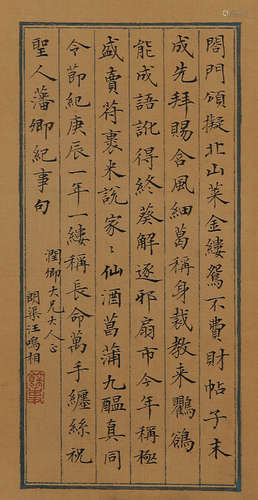 閤門頌擬北山萊金縷鴛不費財帖子未
成先拜賜含風細葛稱身裁教來鸜鵒
能成語訛得終葵解逐邪扇市今年稱極
盛賣荷裹米說家〻仙酒菖蒲九醖真同
令節紀庚辰一年一縷稱長命萬手纏絲祝
聖人藩卿紀事句
潤卿大兄大人正
朗渠汪鳴相